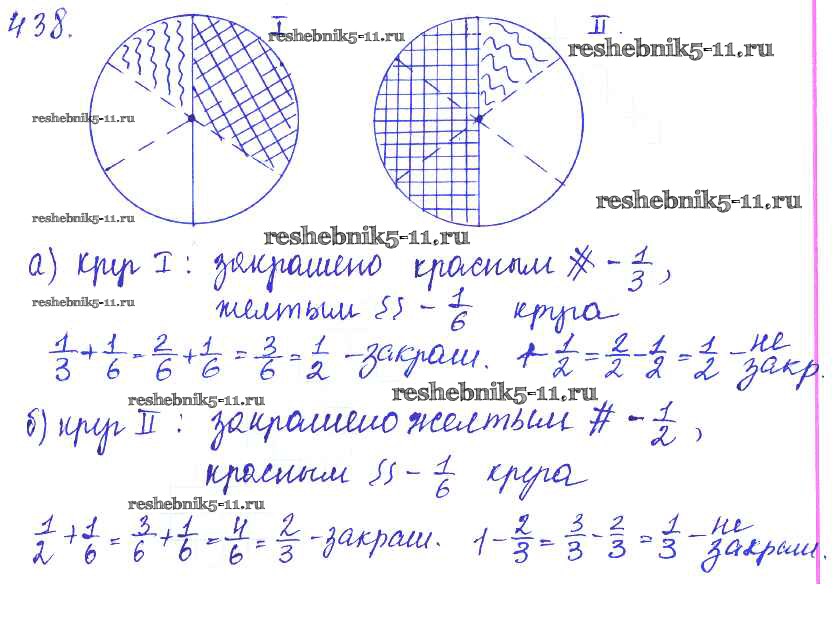 438. I II.
reshebnik5-11.ru
reshebnik5-11.ru
reshebnik5-11.ru
reshebnik5-11.ru
reshebnik5-11.ru
reshebnik5-11.ru
а) круг I : закрашено красным # - 1/3 ,
reshebnik5-11.ru
желтым {} - 1/6 круга
1/3 + 1/6 = 2/6 + 1/6 = 3/6 = 1/2 - закраш. 1 - 1/2 = 2/2 - 1/2 = 1/2 - не закр.
reshebnik5-11.ru
reshebnik5-11.ru
б) круг II : закрашено желтым # - 1/2 ,
красным {} - 1/6 круга
reshebnik5-11.ru
1/2 + 1/6 = 3/6 + 1/6 = 4/6 = 2/3 - закраш. 1 - 2/3 = 3/3 - 2/3 = 1/3 - не закраш.